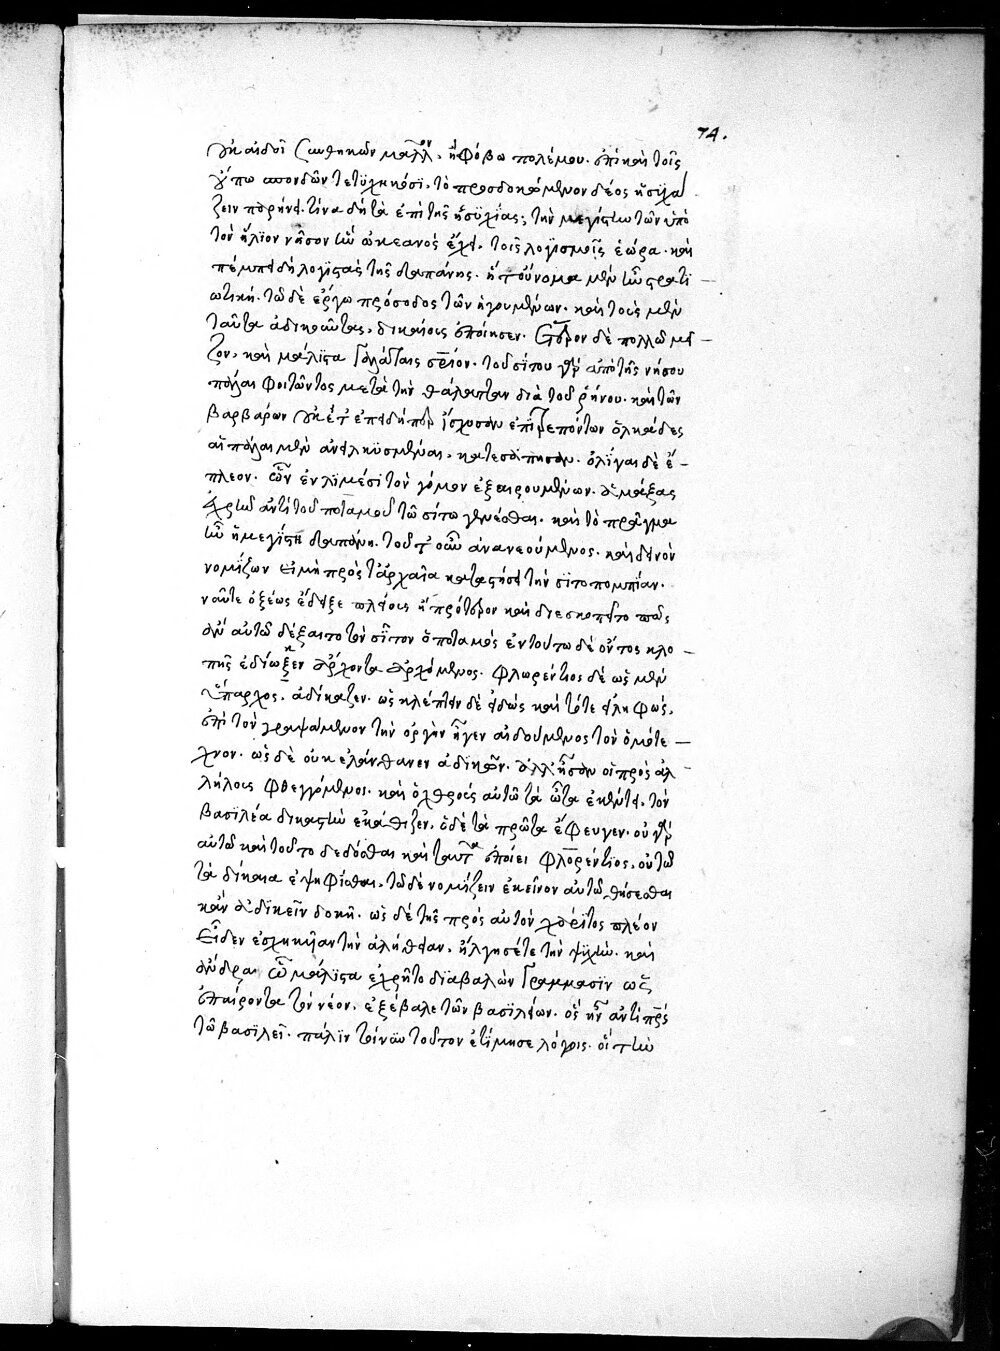 74.
οὐκ αἰδοῖ συνθηκῶν μᾶλλον, ἢ φόβω πολέμου. ἐπεὶ καὶ τοῖς
οὔπω σπονδῶν τετυχηκόσι, τὸ προσδοκώμενον δέος ἡσυχά
ζειν παρήνει. τίνα δὴ τὰ ἐπὶ τῆς ἡσυχίας; τὴν μεγίστην τῶν ὑπὸ
τὸν ἥλιον νῆσον ἣν ὠκεανὸς ἔχει. τοῖς λογισμοῖς ἑώρα. καὶ
πέμπει δὴ λογιστὰς τῆς δαπάνης. ἢ τοὔνομα μὲν ἦν στρατι
ωτική. τῶ δὲ ἔργω πρόσοδος τῶν ἡγουμένων. καὶ τοὺς μὲν
ταῦτα ἀδικοῦντας, δικαίους ἐποίησεν. ἕτερον δὲ πολλῶ μεῖ
ζον, καὶ μάλιστα Γαλάταις σωτήριον. τοῦ σίτου γὰρ ἀπὸ τῆς νήσου
πάλαι φοιτῶντος μετὰ τὴν θάλατταν διὰ τοῦ ῥήνου. καὶ τῶν
βαρβάρων οὐκ ἐπειδήπερ ἴσχυσαν ἐπιτρεπόντων ὁλκάδες
αἱ πάλαι μὲν ἀνειλκυσμέναι, κατεσάπησαν. ὀλίγαι δὲ ἔ
πλεον. ὧν ἐν λιμέσι τὸν γόμον ἐξαιρουμένων. ἁμάξας
ἀντὶ τοῦ ποταμοῦ τῶ σίτω γενέσθαι. καὶ τὸ πρᾶγμα
ἦν ἡ μεγίστη δαπάνη. τοῦτ' οὖν ἀνανεούμενος. καὶ δεινὸν
νομίζων εἰ μὴ πρὸς τἀρχαῖα καταστήσει τὴν σιτοπομπίαν.
ναῦς τε ὀξέως ἔδειξε πλείους ἢ πρότερον καὶ διεσκοπεῖτο πῶς
ἂν αὐτῶ δέξαιτο τὸν σῖτον ὁ ποταμός ἐν τούτω δὲ οὗτος κλο
πῆς ἐδίωξεν ἄρχοντα ἀρχόμενος. Φλωρέντιος δὲ ὡς μὲν
ὕπαρχος, ἐδίκαζεν. ὡς κλέπτειν δὲ εἰδὼς καὶ τότε εἰληφώς,
ἐπὶ τὸν γραψάμενον τὴν ὀργὴν ἦγεν αἰδούμενος τὸν ὁμότε
χνον. ὡς δὲ οὐκ ἐλάνθανεν ἀδικῶν. ἀλλ' ἦσαν οἱ πρὸς ἀλ
λήλους φθεγγόμενοι. καὶ ὁ λῆρος αὐτῶ τὰ ὦτα ἐκέντει. τὸν
βασιλέα δικαστὴν ἐκάθιζεν. ὁ δὲ τὰ πρῶτα ἔφευγεν. οὐ γὰρ
αὐτῶ καὶ τοῦτο δεδόσθαι καὶ ταῦτα ἐποίει Φλωρέντιος, οὐ τῶ
τὰ δίκαια ἐψηφίσθαι, τῶ δὲ νομίζειν ἐκεῖνον αὐτῶ θήσεσθαι
κἂν ἀδικεῖν δοκῆ. ὡς δὲ τῆς πρὸς αὐτὸν χάριτος πλέον
εἶδεν ἐσχηκυῖαν τὴν ἀλήθειαν, ἤλγησέ τε τὴν ψυχὴν. καὶ
ἄνδρα ὧ μάλιστα ἐχρῆτο διαβαλὼν γράμμασιν ὡς
ἐπαίροντα τὸν νέον. ἐξέβαλε τῶν βασιλείων. ὃς ἦν ἀντὶ πατρὸς
τῶ βασιλεῖ. πάλιν τοίνυν τοῦτον ἐτίμησε λόγοις. οἵ τὴν